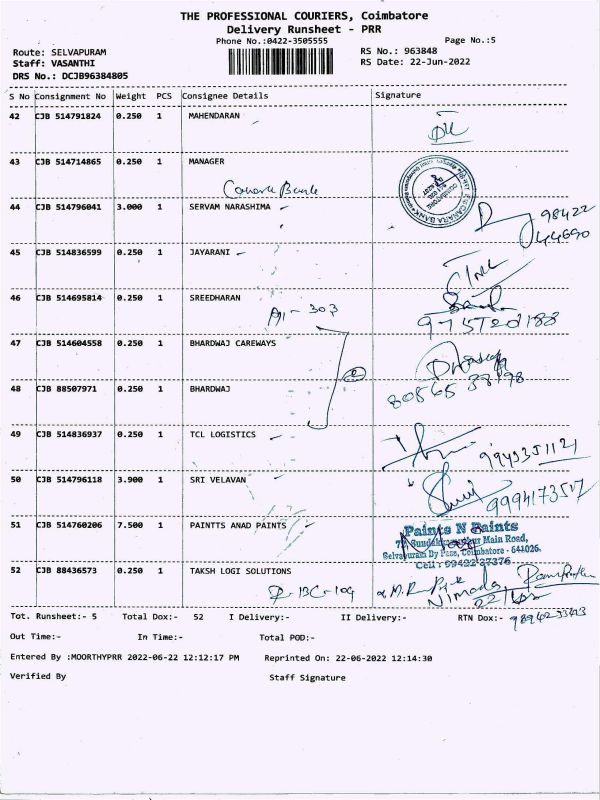 THE PROFESSIONAL COURIERS, Coimbatore
Delivery Runsheet - PRR
Phone No.:0422-3505555
Page No.:5
Route: SELVAPURAM
RS No.: 963848
Staff: VASANTHI
RS Date: 22-Jun-2022
DRS No.: DCJB96384805
S No Consignment No Weight PCS Consignee Details Signature
42 CJB 514791824 0.250 1 MAHENDARAN
43 CJB 514714865 0.250 1 MANAGER
Canara Bank
CANARA BANK
44 CJB 514796041 3.000 1 SERVAM NARASHIMA
98422
44690
45 CJB 514836599 0.250 1 JAYARANI
46 CJB 514695814 0.250 1 SREEDHARAN
303
47 CJB 514604558 0.250 1 BHARDWAJ CAREWAYS
48 CJB 88507971 0.250 1 BHARDWAJ
49 CJB 514836937 0.250 1 TCL LOGISTICS
9943351121
50 CJB 514796118 3.900 1 SRI VELAVAN
51 CJB 514760206 7.500 1 PAINTTS ANAD PAINTS
Paints N Paints
Main Road,
Selvapuram By Pass, Coimbatore - 641026.
Cell : 37376
52 CJB 88436573 0.250 1 TAKSH LOGI SOLUTIONS
Tot. Runsheet:- 5 Total Dox:- 52 I Delivery:- II Delivery:- RTN Dox:-
Out Time:- In Time:- Total POD:-
Entered By :MOORTHYPRR 2022-06-22 12:12:17 PM Reprinted On: 22-06-2022 12:14:30
Verified By Staff Signature